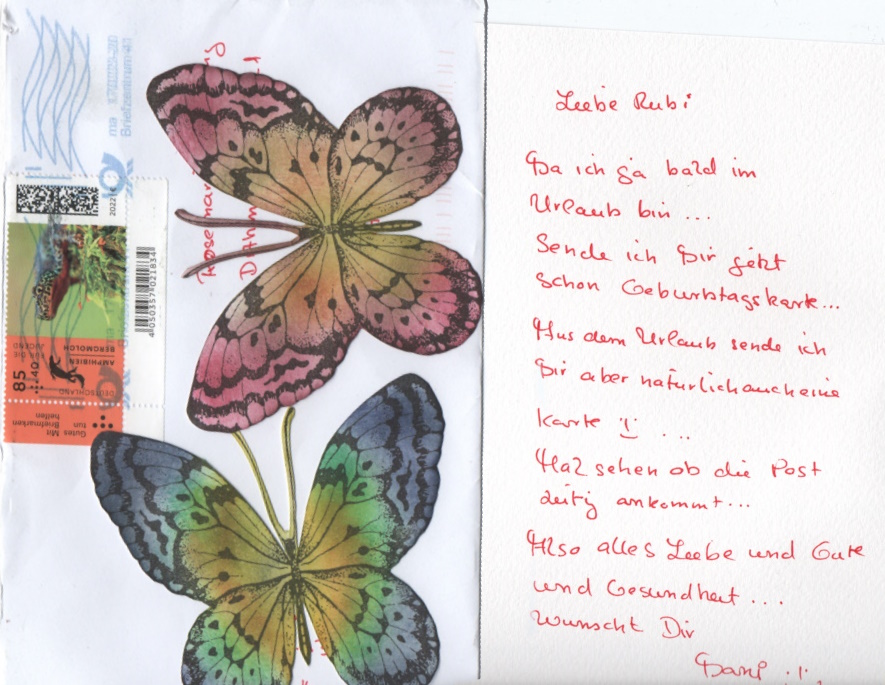 Liebe Rubi
Da ich ja bald im
Urlaub bin ...
Sende ich Dir jetzt
schon Geburtstagskarte...
Aus dem Urlaub sende ich
Dir aber natürlich auch eine
Karte ...
Mal sehen ob die Post
zeitig ankommt...
Also alles Liebe und Gute
und Gesundheit ...
Wünscht Dir
Briefzentrum
4050357021834
85
+40
DEUTSCHLAND
AMPHIBIEN
BERGMOLCH
FÜR DIE
JUGEND
Gutes
tun
Mit
Briefmarken
helfen